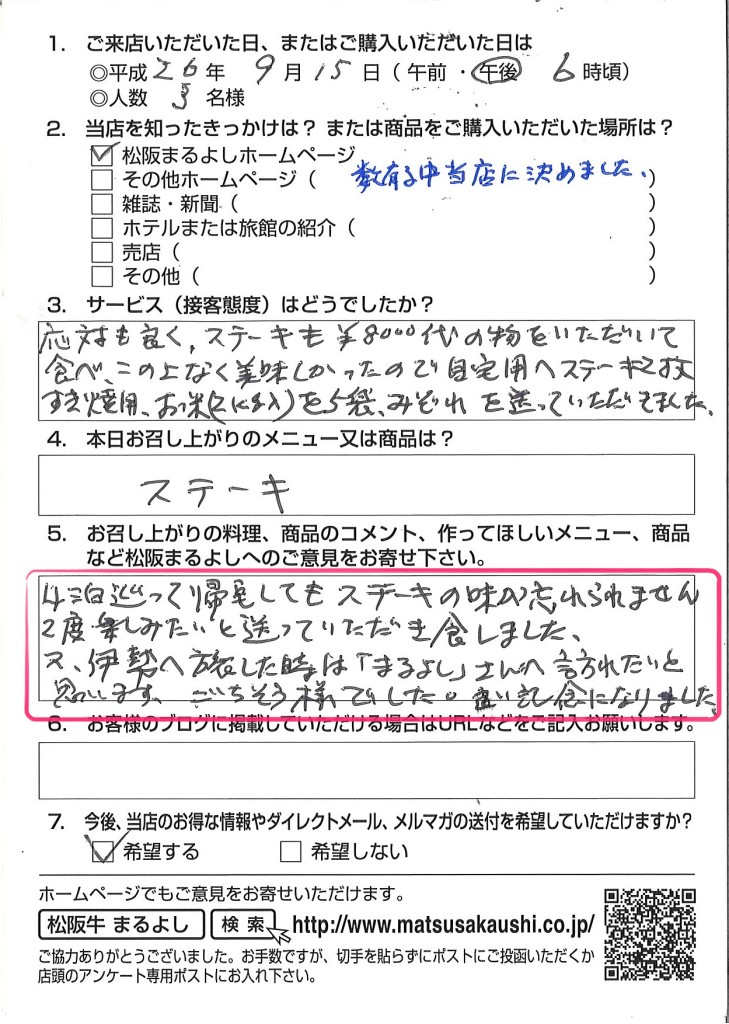 1. ご来店いただいた日、またはご購入いただいた日は
◎平成26年 9月15日（午前・午後 6時頃）
◎人数 3 名様
2. 当店を知ったきっかけは？ または商品をご購入いただいた場所は？
松阪まるよしホームページ
その他ホームページ（ 数有る中当店に決めました。）
雑誌・新聞（ ）
ホテルまたは旅館の紹介（ ）
売店（ ）
その他（ ）
3. サービス（接客態度）はどうでしたか？
応対も良く、ステーキも￥8000代の物をいただいて
食べ、この上なく美味しかったので自宅用へステーキ2枚
すき焼用、お米(2k入)を5袋、みぞれを送っていただきました。
4. 本日お召し上がりのメニュー又は商品は？
ステーキ
5. お召し上がりの料理、商品のコメント、作ってほしいメニュー、商品
など松阪まるよしへのご意見をお寄せ下さい。
4泊巡って帰宅してもステーキの味が忘れられません
2度楽しみたいと送っていただき食しました、
又、伊勢へ旅した時は「まるよし」さんへ訪れたいと
思います、ごちそう様でした。良い記念になりました。
6. お客様のブログに掲載していただける場合はURLなどをご記入お願いします。
7. 今後、当店のお得な情報やダイレクトメール、メルマガの送付を希望していただけますか？
希望する 希望しない
ホームページでもご意見をお寄せいただけます。
松阪牛 まるよし 検索 http://www.matsusakaushi.co.jp/
ご協力ありがとうございました。お手数ですが、切手を貼らずにポストにご投函いただくか
店頭のアンケート専用ポストにお入れ下さい。